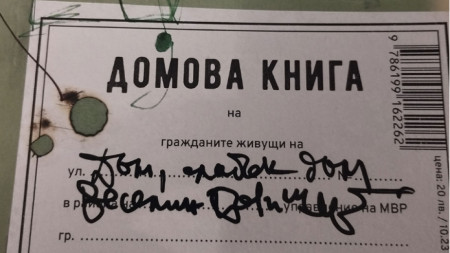 ДОМОВА КНИГА
на
гражданите живущи на
ул. Дом, сладък дом
в района на управление на МВР
гр.
9 786199 162262
цена: 20 лв. / 10.23